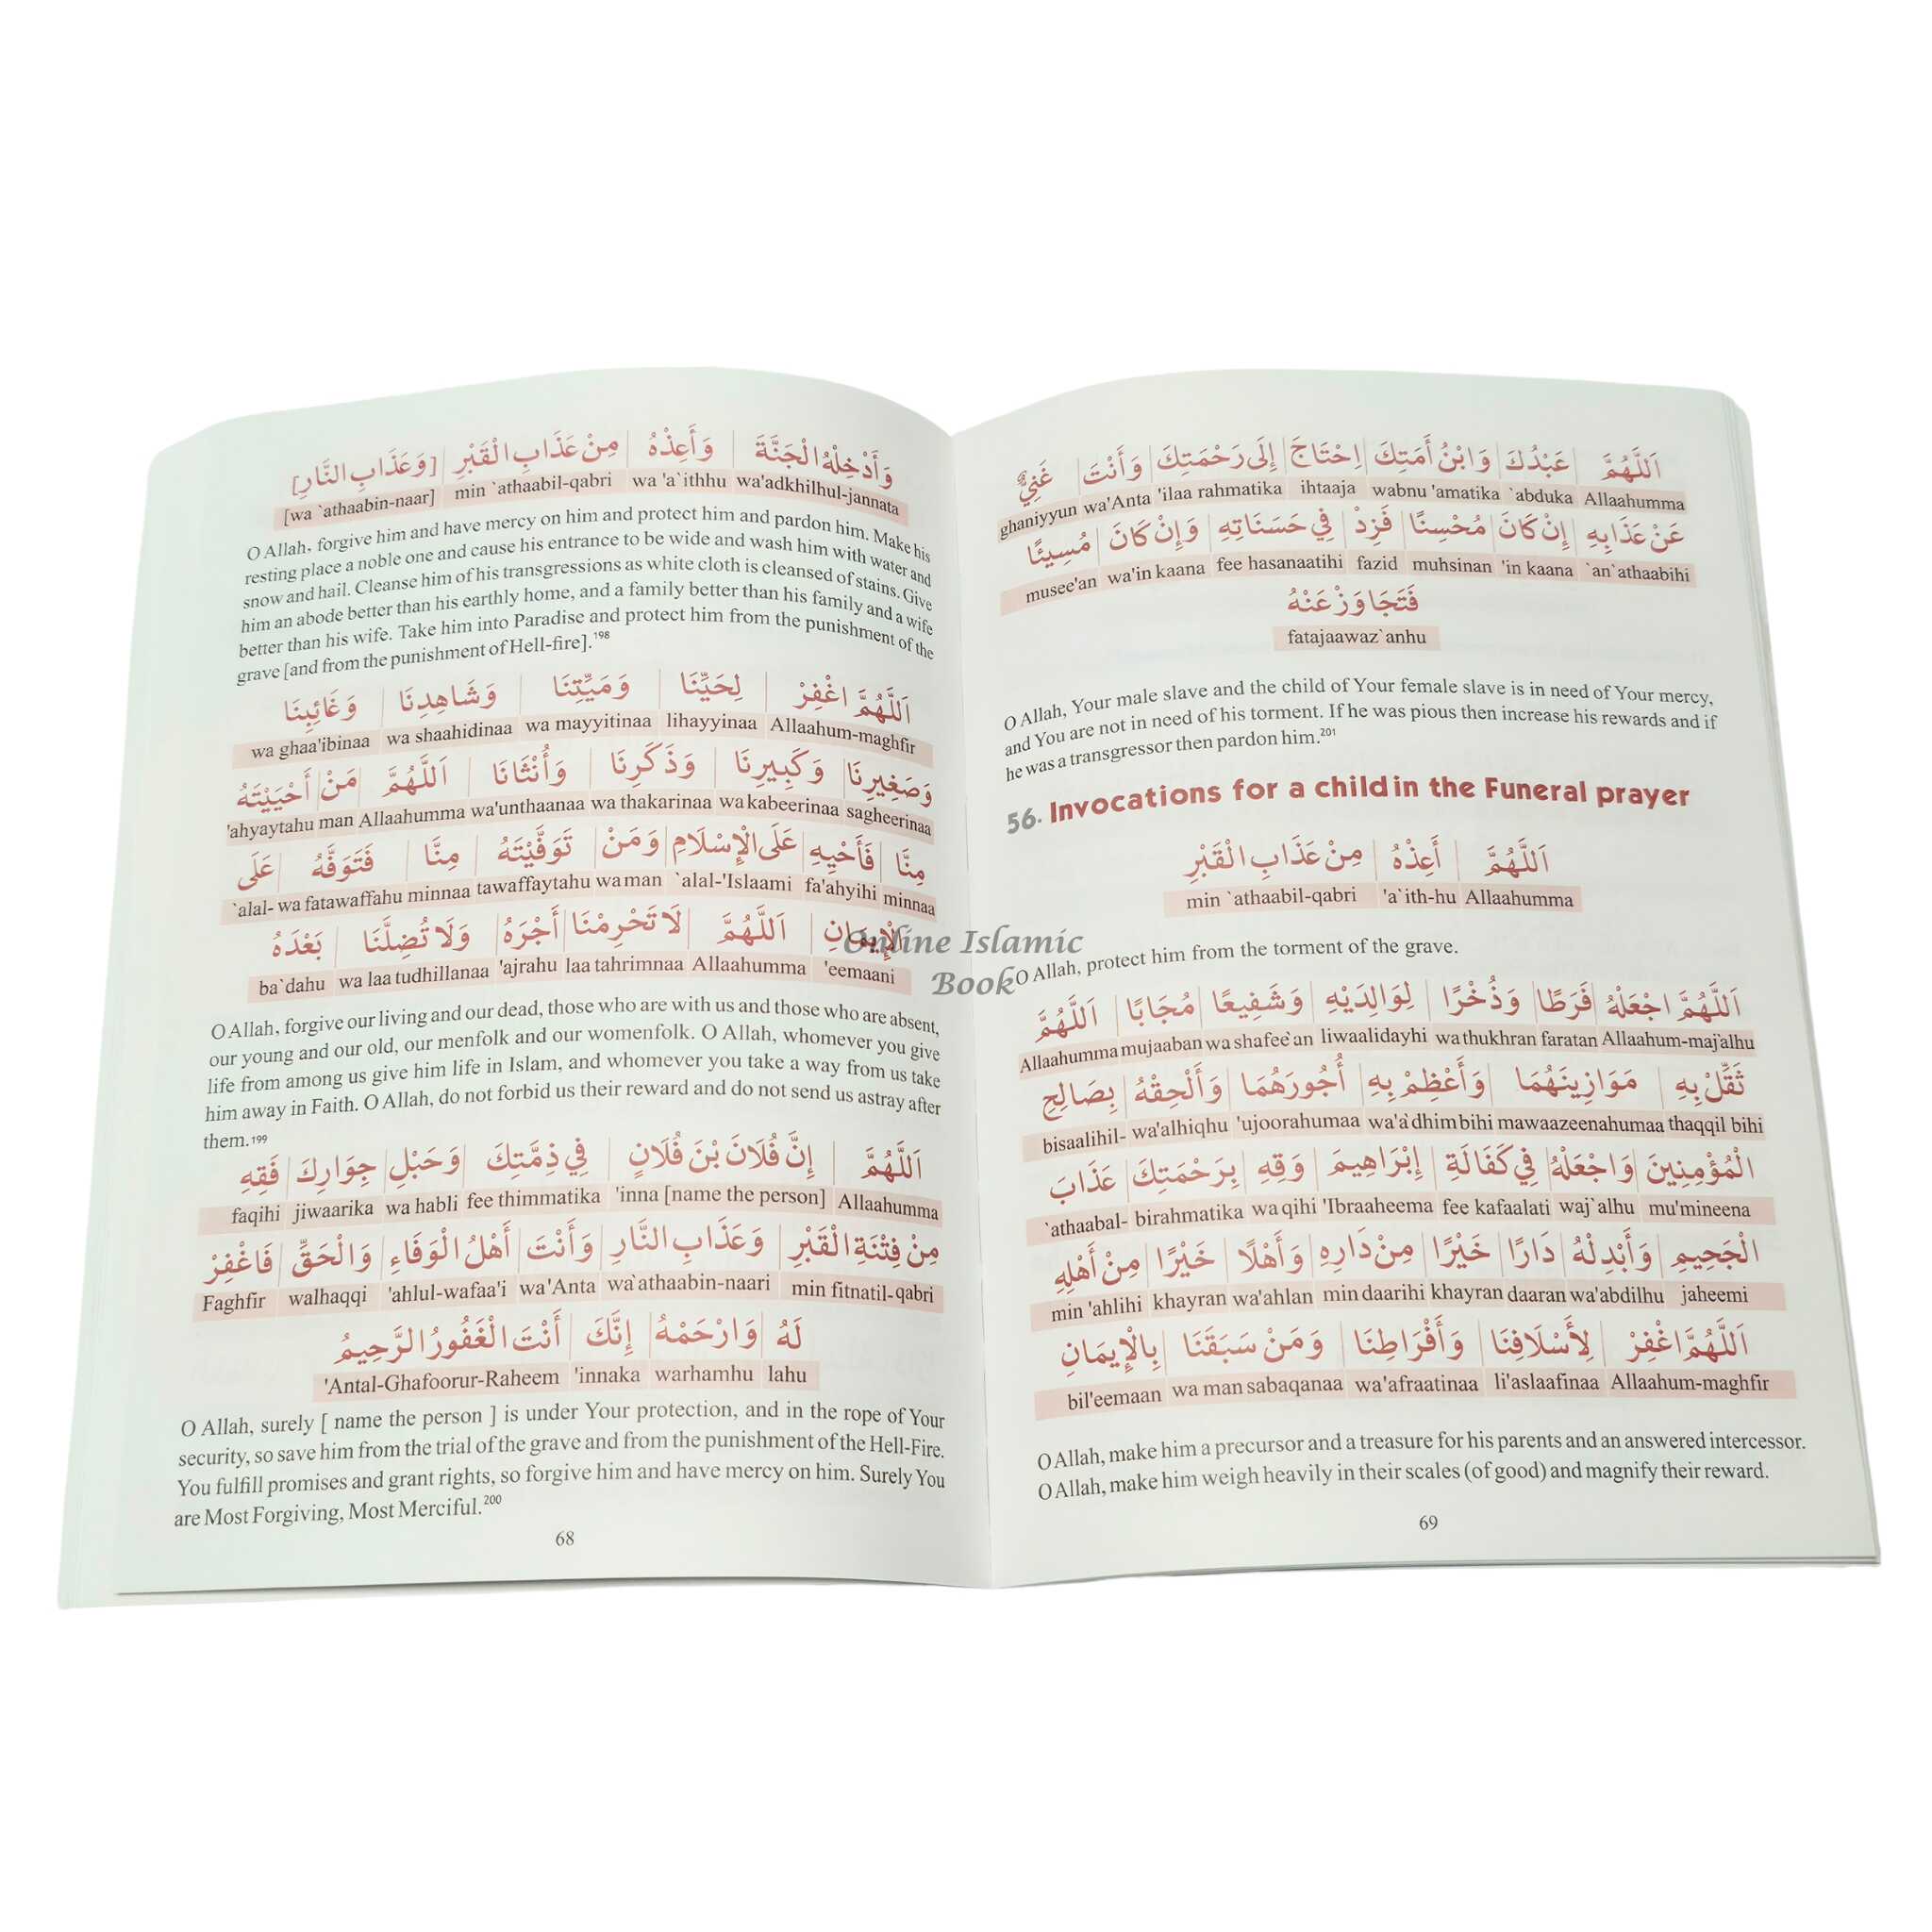 وَأَدْخِلْهُ الْجَنَّةَ وَأَعِذْهُ مِنْ عَذَابِ الْقَبْرِ [وَعَذَابِ النَّارِ]
[wa `athaabin-naar] min `athaabil-qabri wa 'a`ithhu wa'adkhilhul-jannata
O Allah, forgive him and have mercy on him and protect him and pardon him. Make his
resting place a noble one and cause his entrance to be wide and wash him with water and
snow and hail. Cleanse him of his transgressions as white cloth is cleansed of stains. Give
him an abode better than his earthly home, and a family better than his family and a wife
better than his wife. Take him into Paradise and protect him from the punishment of the
grave [and from the punishment of Hell-fire].198
اَللَّهُمَّ اغْفِرْ لِحَيِّنَا وَمَيِّتِنَا وَشَاهِدِنَا وَغَائِبِنَا
wa ghaa'ibinaa wa shaahidinaa wa mayyitinaa lihayyinaa Allaahum-maghfir
وَصَغِيرِنَا وَكَبِيرِنَا وَذَكَرِنَا وَأُنْثَانَا اَللَّهُمَّ مَنْ أَحْيَيْتَهُ
'ahyaytahu man Allaahumma wa'unthaanaa wa thakarinaa wa kabeerinaa sagheerinaa
مِنَّا فَأَحْيِهِ عَلَى الْإِسْلَامِ وَمَنْ تَوَفَّيْتَهُ مِنَّا فَتَوَفَّهُ عَلَى
`alal- wa fatawaffahu minnaa tawaffaytahu wa man `alal-'Islaami fa'ahyihi minnaa
الْإِيمَانِ اَللَّهُمَّ لَا تَحْرِمْنَا أَجْرَهُ وَلَا تُضِلَّنَا بَعْدَهُ
ba`dahu wa laa tudhillanaa 'ajrahu laa tahrimnaa Allaahumma 'eemaani
O Allah, forgive our living and our dead, those who are with us and those who are absent,
our young and our old, our menfolk and our womenfolk. O Allah, whomever you give
life from among us give him life in Islam, and whomever you take a way from us take
him away in Faith. O Allah, do not forbid us their reward and do not send us astray after
them.199
اَللَّهُمَّ إِنَّ فُلَانَ بْنَ فُلَانٍ فِي ذِمَّتِكَ وَحَبْلِ جِوَارِكَ فَقِهِ
faqihi jiwaarika wa habli fee thimmatika 'inna [name the person] Allaahumma
مِنْ فِتْنَةِ الْقَبْرِ وَعَذَابِ النَّارِ وَأَنْتَ أَهْلُ الْوَفَاءِ وَالْحَقِّ فَاغْفِرْ
Faghfir walhaqqi 'ahlul-wafaa'i wa'Anta wa`athaabin-naari min fitnatil-qabri
لَهُ وَارْحَمْهُ إِنَّكَ أَنْتَ الْغَفُورُ الرَّحِيمُ
'Antal-Ghafoorur-Raheem 'innaka warhamhu lahu
O Allah, surely [ name the person ] is under Your protection, and in the rope of Your
security, so save him from the trial of the grave and from the punishment of the Hell-Fire.
You fulfill promises and grant rights, so forgive him and have mercy on him. Surely You
are Most Forgiving, Most Merciful.200
68
اَللَّهُمَّ عَبْدُكَ وَابْنُ أَمَتِكَ اِحْتَاجَ إِلَى رَحْمَتِكَ وَأَنْتَ غَنِيٌّ
ghaniyyun wa'Anta 'ilaa rahmatika ihtaaja wabnu 'amatika `abduka Allaahumma
عَنْ عَذَابِهِ إِنْ كَانَ مُحْسِنًا فَزِدْ فِي حَسَنَاتِهِ وَإِنْ كَانَ مُسِيئًا
musee'an wa'in kaana fee hasanaatihi fazid muhsinan 'in kaana `an`athaabihi
فَتَجَاوَزْ عَنْهُ
fatajaawaz`anhu
O Allah, Your male slave and the child of Your female slave is in need of Your mercy,
and You are not in need of his torment. If he was pious then increase his rewards and if
he was a transgressor then pardon him.201
56. Invocations for a child in the Funeral prayer
اَللَّهُمَّ أَعِذْهُ مِنْ عَذَابِ الْقَبْرِ
min `athaabil-qabri 'a`ith-hu Allaahumma
O Allah, protect him from the torment of the grave.
اَللَّهُمَّ اجْعَلْهُ فَرَطًا وَذُخْرًا لِوَالِدَيْهِ وَشَفِيعًا مُجَابًا اَللَّهُمَّ
Allaahumma mujaaban wa shafee`an liwaalidayhi wa thukhran faratan Allaahum-maj`alhu
ثَقِّلْ بِهِ مَوَازِينَهُمَا وَأَعْظِمْ بِهِ أُجُورَهُمَا وَأَلْحِقْهُ بِصَالِحِ
bisaalihil- wa'alhiqhu 'ujoorahumaa wa'a`dhim bihi mawaazeenahumaa thaqqil bihi
الْمُؤْمِنِينَ وَاجْعَلْهُ فِي كَفَالَةِ إِبْرَاهِيمَ وَقِهِ بِرَحْمَتِكَ عَذَابَ
`athaabal- birahmatika wa qihi 'Ibraaheema fee kafaalati waj`alhu mu'mineena
الْجَحِيمِ وَأَبْدِلْهُ دَارًا خَيْرًا مِنْ دَارِهِ وَأَهْلًا خَيْرًا مِنْ أَهْلِهِ
min 'ahlihi khayran wa'ahlan min daarihi khayran daaran wa'abdilhu jaheemi
اَللَّهُمَّ اغْفِرْ لِأَسْلَافِنَا وَأَفْرَاطِنَا وَمَنْ سَبَقَنَا بِالْإِيمَانِ
bil'eemaan wa man sabaqanaa wa'afraatinaa li'aslaafinaa Allaahum-maghfir
O Allah, make him a precursor and a treasure for his parents and an answered intercessor.
O Allah, make him weigh heavily in their scales (of good) and magnify their reward.
69
Online Islamic
Book